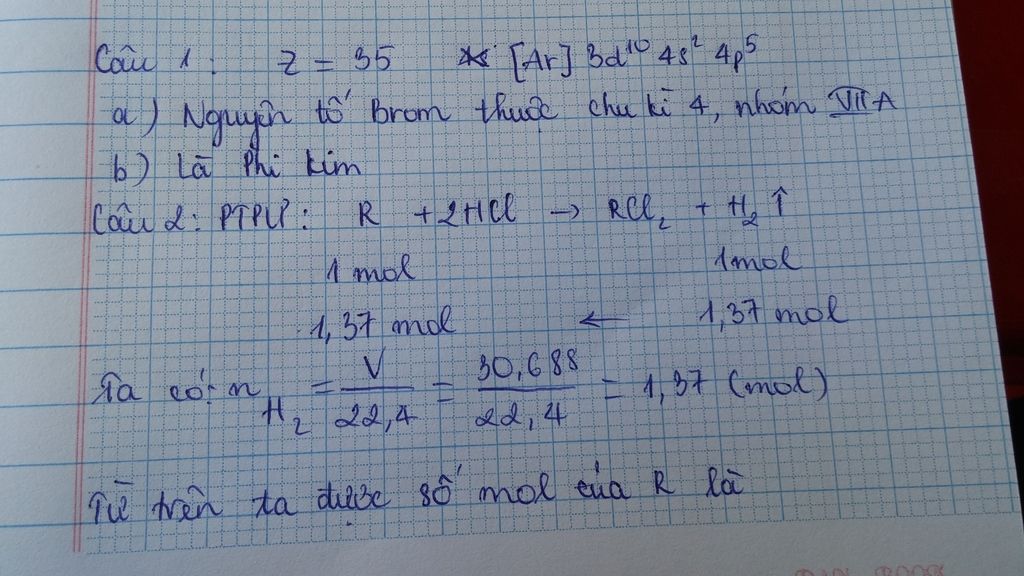 Câu 1: Z = 35 [Ar] 3d¹⁰ 4s² 4p⁵
a) Nguyên tố Brom thuộc chu kì 4, nhóm VIIA
b) Là Phi kim
Câu 2: PTPƯ: R + 2HCl → RCl₂ + H₂ ↑
1 mol 1mol
1,37 mol ← 1,37 mol
Ta có: n H₂ = V/22,4 = 30,688/22,4 = 1,37 (mol)
Từ trên ta được số mol của R là